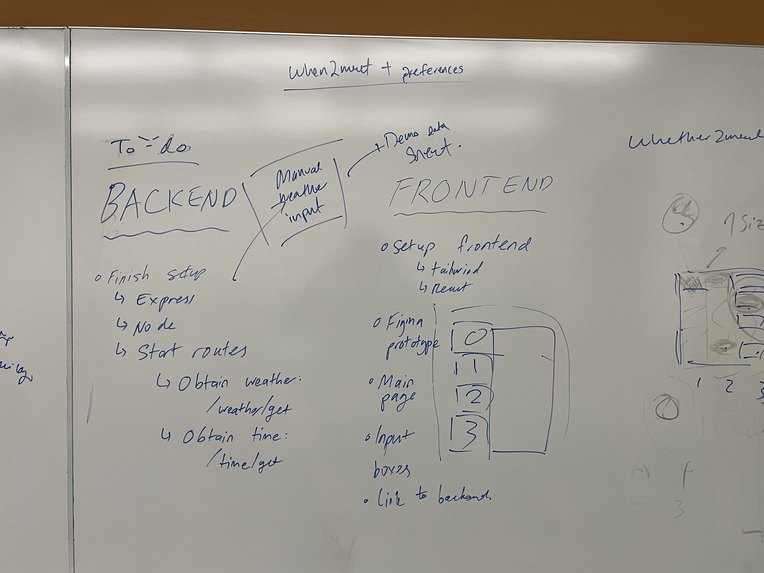 When2meet + preferences
To-do
BACKEND
Manual
weather
input
+ Demo data
Sheet.
FRONTEND
Finish setup
↳ Express
↳ Node
↳ Start routes
↳ Obtain weather:
/weather/get
↳ Obtain time:
/time/get
Setup frontend
↳ tailwind
↳ React
Figma
prototype
Main
page
Input
boxes
Link to backend
0
1
2
3
Whether2meet
1 2 3